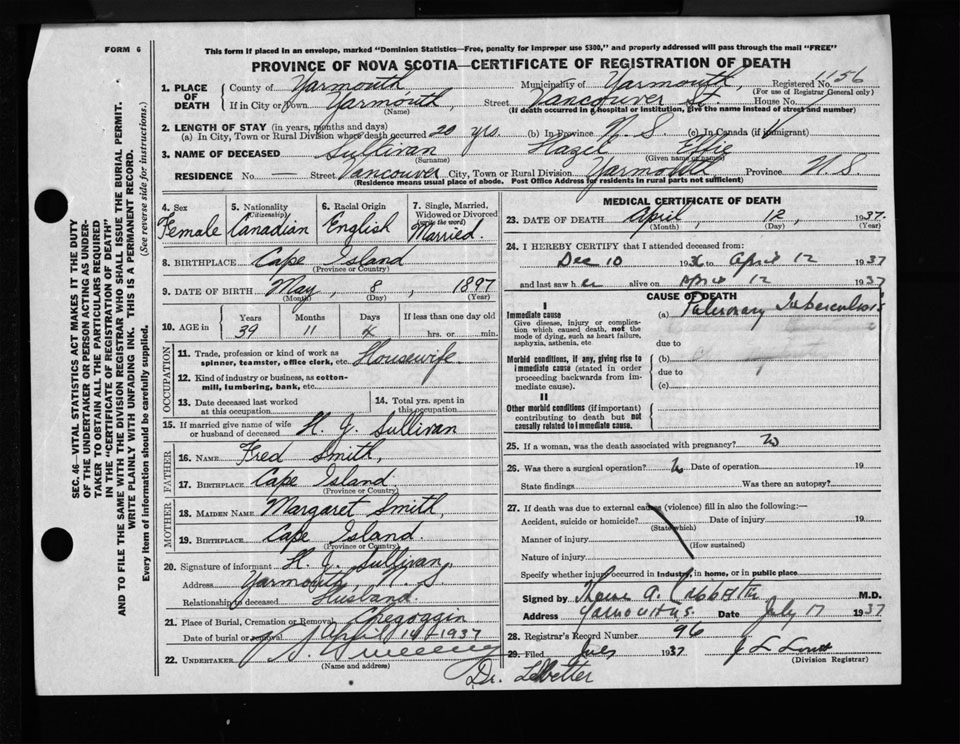 FORM 6
This form if placed in an envelope, marked "Dominion Statistics—Free, penalty for improper use $300," and properly addressed will pass through the mail "FREE"
PROVINCE OF NOVA SCOTIA—CERTIFICATE OF REGISTRATION OF DEATH
SEC. 46—VITAL STATISTICS ACT MAKES IT THE DUTY
OF THE UNDERTAKER OR PERSON ACTING AS UNDER-
TAKER TO OBTAIN ALL THE PARTICULARS REQUIRED
IN THE "CERTIFICATE OF REGISTRATION OF DEATH"
AND TO FILE THE SAME WITH THE DIVISION REGISTRAR WHO SHALL ISSUE THE BURIAL PERMIT.
WRITE PLAINLY WITH UNFADING INK. THIS IS A PERMANENT RECORD.
Every item of information should be carefully supplied. (See reverse side for instructions.)
1. PLACE OF DEATH County of Yarmouth Municipality of Yarmouth, Registered No. 1156
(For use of Registrar General only)
If in City or Town Yarmouth, Street Vancouver St. House No.
(Name) (If death occurred in a hospital or institution, give the name instead of street and number)
2. LENGTH OF STAY (in years, months and days)
(a) In City, Town or Rural Division where death occurred 20 yrs. (b) In Province N. S. (c) In Canada (if immigrant)
3. NAME OF DECEASED Sullivan Hazel Effie
(Surname) (Given name or names)
RESIDENCE No. — Street Vancouver City, Town or Rural Division Yarmouth Province N. S.
(Residence means usual place of abode. Post Office Address for residents in rural parts not sufficient)
4. Sex 5. Nationality (Citizenship) 6. Racial Origin 7. Single, Married, Widowed or Divorced (write the word)
Female Canadian English Married.
8. BIRTHPLACE Cape Island
(Province or Country)
9. DATE OF BIRTH May, 8, 1897
(Month) (Day) (Year)
10. AGE in Years Months Days If less than one day old
39 11 4 hrs. or min.
OCCUPATION
11. Trade, profession or kind of work as spinner, teamster, office clerk, etc. Housewife.
12. Kind of industry or business, as cotton-mill, lumbering, bank, etc.
13. Date deceased last worked at this occupation 14. Total yrs. spent in this occupation
15. If married give name of wife or husband of deceased H. J. Sullivan
FATHER
16. NAME Fred Smith,
17. BIRTHPLACE Cape Island.
(Province or Country)
MOTHER
18. MAIDEN NAME Margaret Smith,
19. BIRTHPLACE Cape Island.
(Province or Country)
20. Signature of informant H. J. Sullivan,
Address Yarmouth, N. S.
Relationship to deceased Husband.
21. Place of Burial, Cremation or Removal Chegoggin
Date of burial or removal April 14 1937
22. UNDERTAKER Sweeney
(Name and address)
Dr. Lebetter
MEDICAL CERTIFICATE OF DEATH
23. DATE OF DEATH April, 12, 1937.
(Month) (Day) (Year)
24. I HEREBY CERTIFY that I attended deceased from:
Dec 10 1936 to April 12 1937
and last saw her alive on April 12 1937
CAUSE OF DEATH
I
Immediate cause (a) Pulmonary Tuberculosis
Give disease, injury or complica-
tion which caused death, not the
mode of dying, such as heart failure,
asphyxia, asthenia, etc.
due to
Morbid conditions, if any, giving rise to
immediate cause (stated in order
proceeding backwards from im-
mediate cause).
(b)
due to
(c)
II
Other morbid conditions (if important)
contributing to death but not
causally related to immediate cause.
25. If a woman, was the death associated with pregnancy?
26. Was there a surgical operation? Date of operation 19
State findings Was there an autopsy?
27. If death was due to external causes (violence) fill in also the following:—
Accident, suicide or homicide? Date of injury 19
(State which)
Manner of injury
(How sustained)
Nature of injury
Specify whether injury occurred in industry, in home, or in public place
Signed by M.D.
Address Yarmouth N.S. Date July 17 1937
28. Registrar's Record Number 96
29. Filed July 1937
(Division Registrar)